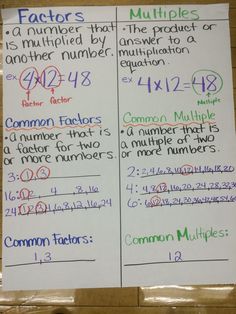 Factors
• A number that
is multiplied by
another number.
ex. 4x12=48
Factor Factor
Common Factors
• A number that is
a factor for two
or more numbers.
3: 1,3
16: 1,2, 4 ,8,16
24: 1,2,3,4,6,8,12,16,24
Common Factors:
1,3
Multiples
• The product or
answer to a
multiplication
equation.
4x12=48
Multiple
Common Multiple
• A number that is
a multiple of two
or more numbers.
2: 2,4,6,8,10,12,14,16,18,20
4: 4,8,12,16,20,24,28,32,36
6: 6,12,18,24,30,36,42,48,54,60
Common Multiples:
12